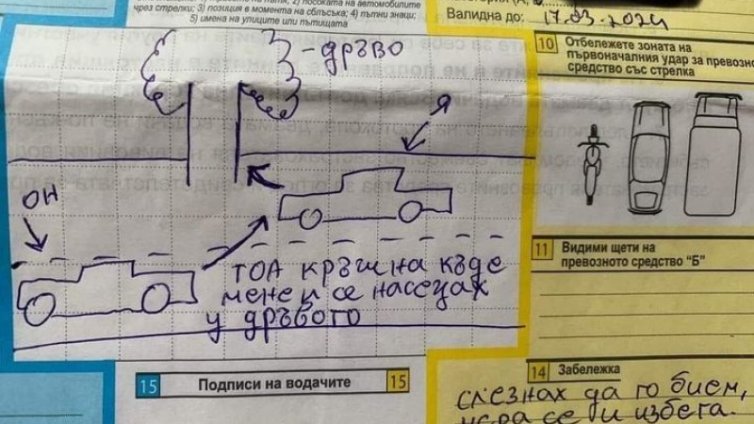 чрез стрелки; 3) позиция в момента на сблъсъка; 4) пътни знаци;
5) имена на улиците или пътищата
Валидна до: 17.03.2024
10 Отбележете зоната на
първоначалния удар за превозно
средство със стрелка
-дръво
Я
ОН
ТОА КРЪШ НА КЪДЕ
МЕНЕ И СЕ НАСЕЦАХ
У ДРЪВОТО
11 Видими щети на
превозното средство "Б"
15 Подписи на водачите 15
14 Забележка
слезнах да го бием,
се и избега.